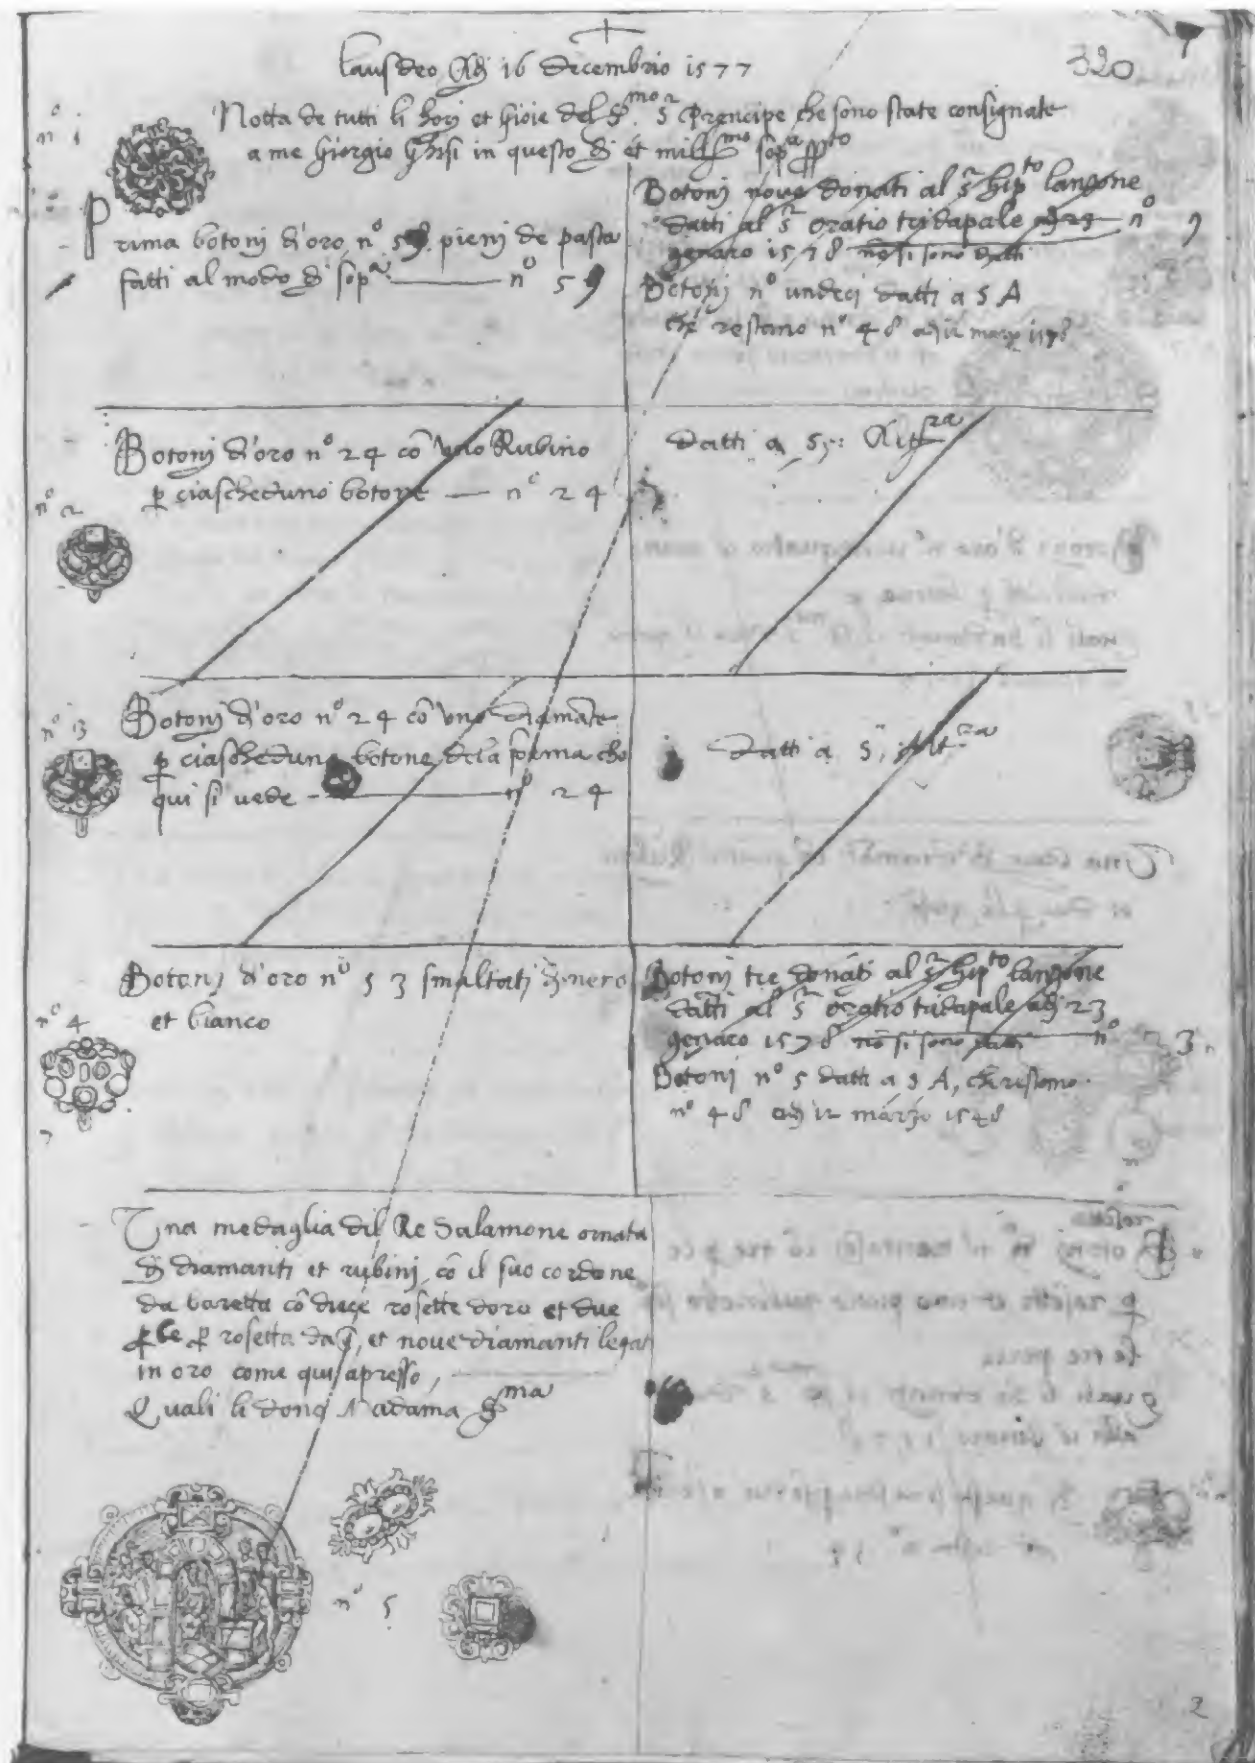 320
Laus deo Adi 16 decembrio 1577
Notta de tutti li hori et gioie del Sr.mo S.r Prencipe che sono state consignate
a me Giorgio Ghisi in questo di et mill.mo sop.a
n.o 1
Prima botonj d'oro n.o 59 pienj de pasta
fatti al modo di sop.a n.o 59
Botonj nove donati al S.r Hip.to lanzone
datti al S.r oratio tridapale adi 23 n.o 9
genaro 1578 nō si sono datti
Botonj n.o undeci datti a S A
che restano n.o 48 adi 12 marzo 1578
n.o 2
Botonj d'oro n.o 24 cō uno Rubino
p ciascheduno botone n.o 24
Datti a S: Alt.za
n.o 3
Botonj d'oro n.o 24 cō uno diamāte
p ciascheduno botone dela forma che
qui si vede n.o 24
Datti a S. Alt.za
n.o 4
Botonj d'oro n.o 53 smaltatj di nero
et bianco
Botonj tre donati al S.r Hip.to lanzone
datti al S.r oratio tridapale adi 23
genaro 1578 nō si sono datti n.o 3
Botonj n.o 5 datti a S A, che restano
n.o 48 adi 12 marzo 1578
Una medaglia dil Re Salamone ornata
di diamanti et rubinj, cō il suo cordone
da baretta cō diece rosette doro et due
perle p rosetta, et nove diamanti legati
in oro come qui apresso,
Quali li donò Madama S.ma
n.o 5
2